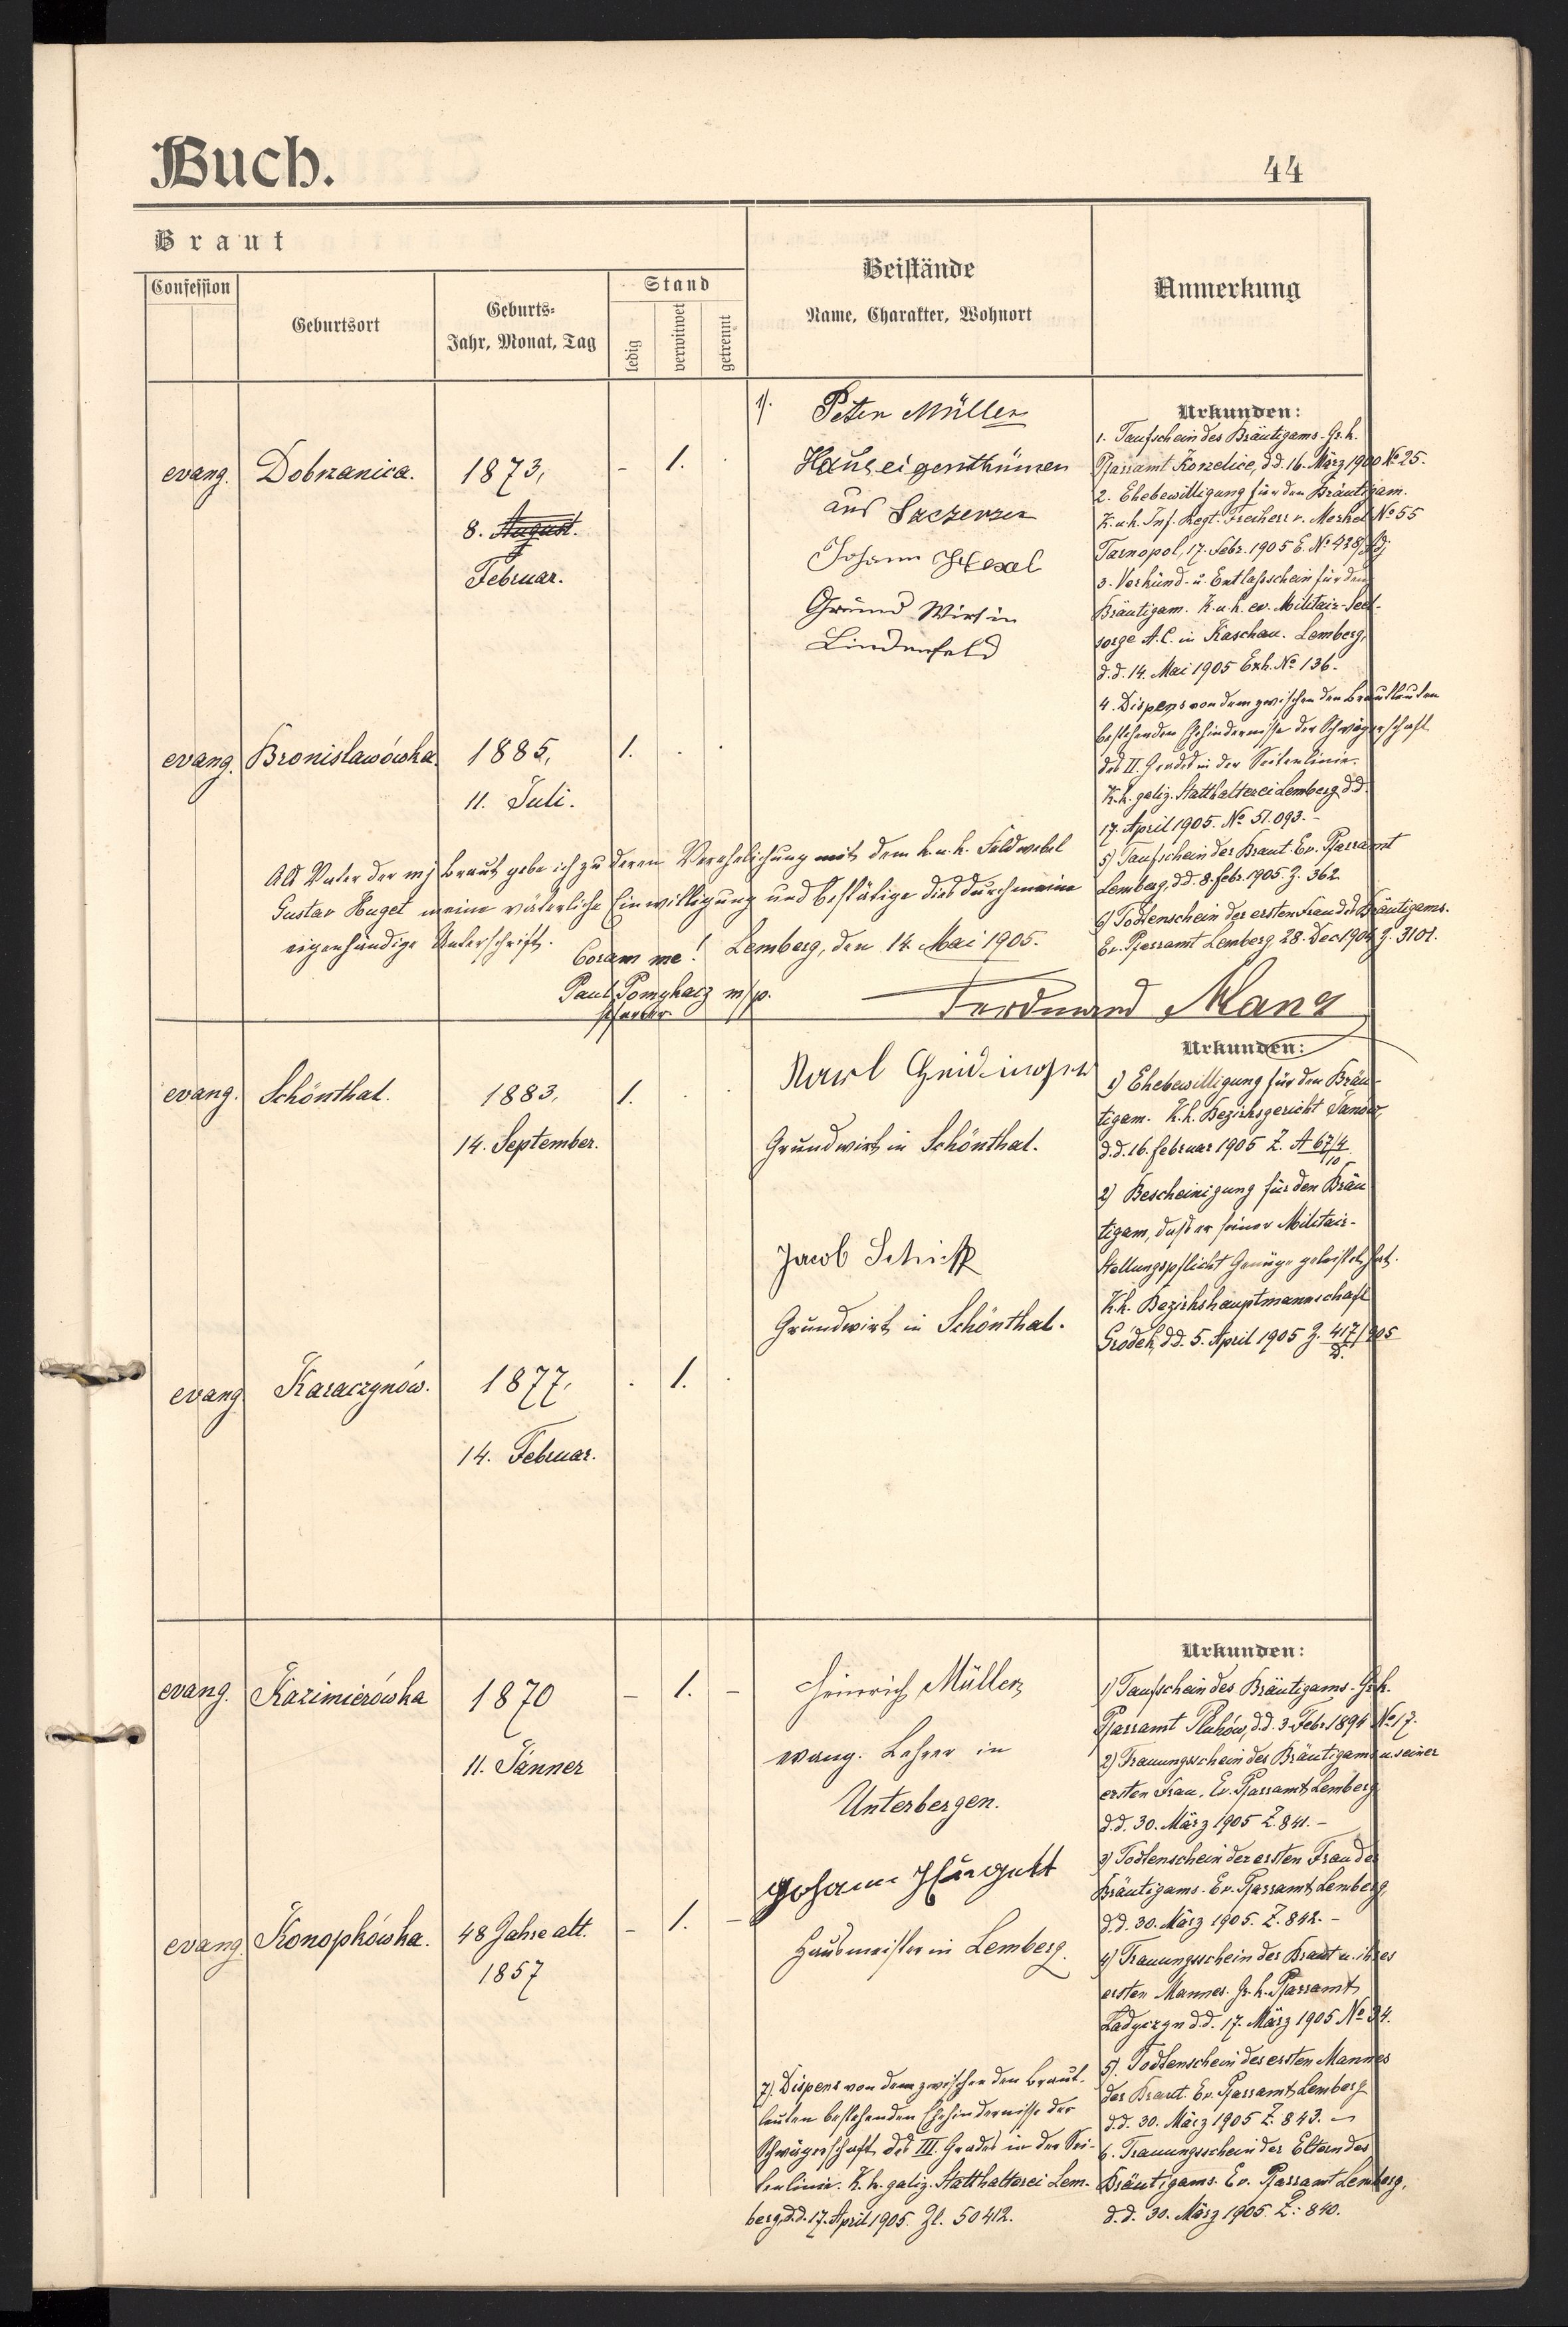 Buch.
44
Braut
Confession
Geburtsort
Geburts-
Jahr, Monat, Tag
Stand
ledig
verwitwet
getrennt
Beistände
Name, Charakter, Wohnort
Anmerkung
evang.
Dobrzanica.
1873,
8. August.
Februar.
- 1. .
1/. Peter Müller
Hauseigenthümer
aus Szczerzec
Johann
Grund Wirt in
Lindenfeld
Urkunden:
1. Taufschein des Bräutigams. Gr. k.
Pfarramt Korzelice, d.d. 16. März 1900 No 25.
2. Ehebewilligung für den Bräutigam.
K. u. k. Inf. Regt. Freiherr v. Merkel No 55
Tarnopol, 17. Febr. 1905 E. No 438/
3. Verkünd- u. Entlaßschein für den
Bräutigam. K. u. k. ev. Militair-Seel-
sorge A. C. in Kaschau. Lemberg,
d.d. 14. Mai 1905 Exh. No 136.
4. Dispens von dem zwischen den Brautleuten
bestehenden Ehehindernisse der Schwägerschaft
des II. Grades in der Seitenlinie.
K. k. galiz. Statthalterei Lemberg d.d.
17. April 1905. No 51.093. -
5) Taufschein der Braut. Ev. Pfarramt
Lemberg, d.d. 8. Febr. 1905. Z. 362.
6) Todtenschein der ersten Frau des Bräutigams.
Ev. Pfarramt Lemberg 28. Dec 1904 Z. 3101.
evang.
Bronislawówka
1885,
11. Juli.
1. . .
Als Vater der mj Braut gebe ich zu deren Verehelichung mit dem k. u. k. Feldwebel
Gustav Huget meine väterliche Einwilligung und bestätige dies durch meine
eigenhändige Unterschrift.
Coram me! Lemberg, den 14. Mai 1905.
Paul Pomykacz m/p.
Pfarrer
Ferdinand Manz
evang.
Schönthal.
1883,
14. September.
1. . .
Karl
Grundwirt in Schönthal.
Jacob Schick
Grundwirt in Schönthal.
Urkunden:
1) Ehebewilligung für den Bräu-
tigam. K. k. Bezirksgericht Janów,
d.d. 16. februar 1905 Z. A 67/4
10
2) Bescheinigung für den Bräu
tigam, daß er seiner Militair-
stellungspflicht Genüge geleistet hat.
K. k. Bezirkshauptmannschaft
Gródek, d.d. 5. April 1905 Z. 417/905
evang.
Karaczynów.
1877,
14. Februar.
. 1. .
evang.
Kazimierówka
1870
11. Jänner
- 1. -
Heinrich Müller
evang. Lehrer in
Unterbergen.
Johann
Hausmeister in Lemberg.
Urkunden:
1) Taufschein des Bräutigams. Gr. k.
Pfarramt Pluhów, d.d. 3. Febr. 1894 No 17.
2) Trauungsschein des Bräutigams u. seiner
ersten Frau. Ev. Pfarramt Lemberg
d.d. 30. März 1905 Z. 841. -
3) Todtenschein der ersten Frau des
Bräutigams. Ev. Pfarramt Lemberg,
d.d. 30. März 1905. Z. 842. -
4) Trauungsschein der Braut u. ihres
ersten Mannes. Gr. k. Pfarramt
Ladyczyn d.d. 17. März 1905 No 34.
5). Todtenschein des ersten Mannes
der Braut. Ev. Pfarramt Lemberg
d.d. 30. März 1905 Z. 843. -
6. Trauungsschein der Eltern des
Bräutigams. Ev. Pfarramt Lemberg,
d.d. 30. März 1905. Z.: 840.
evang.
Konopkówka.
48 Jahre alt.
1857
- 1. -
7). Dispens von dem zwischen den Braut-
leuten bestehenden Ehehindernisse der
Schwägerschaft des III. Grades in der Sei-
tenlinie. K. k. galiz. Statthalterei Lem-
berg, d.d. 17. April 1905. Zl. 50412.